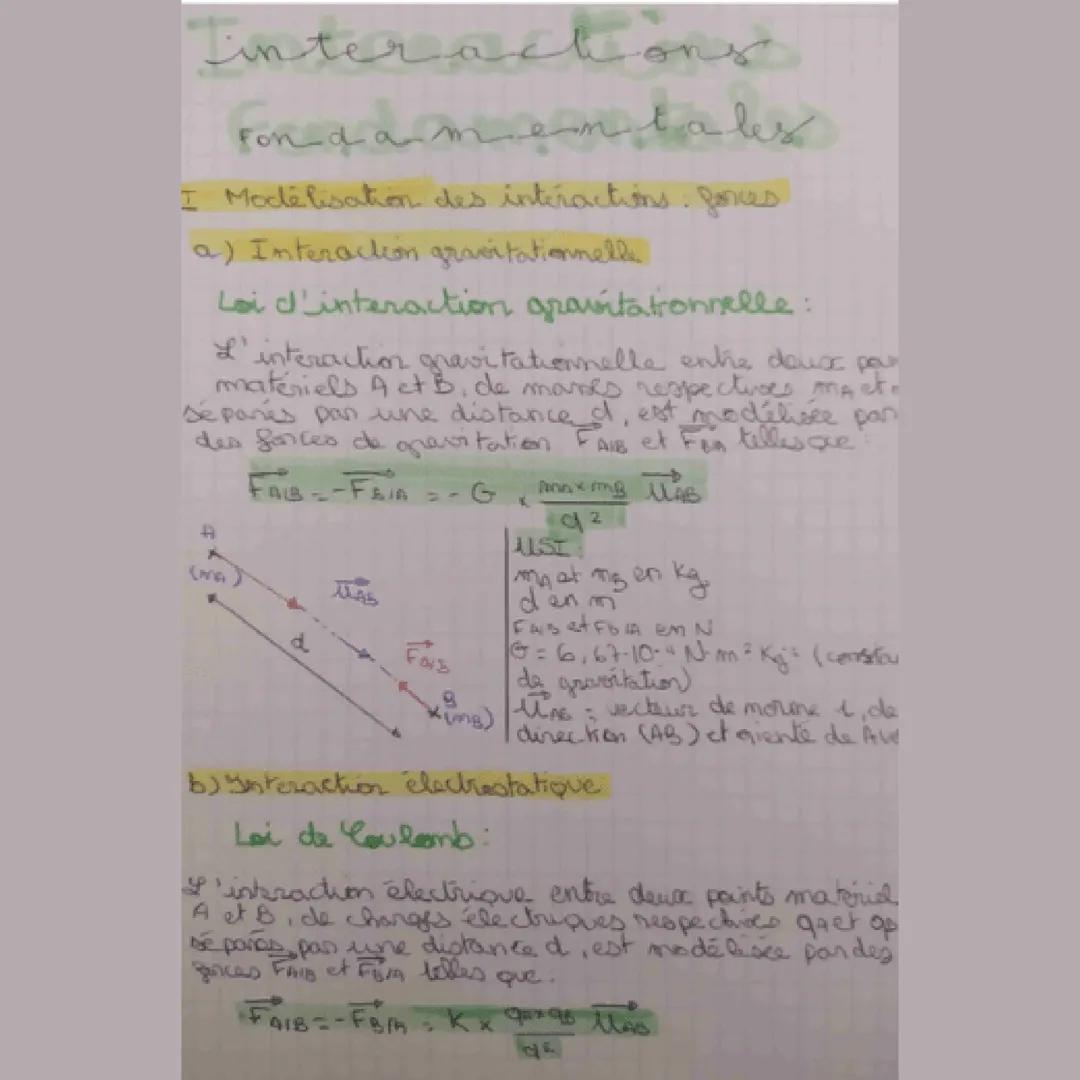 Interactions
Fondamentales
I Modélisation des intéractions : forces
a) Interaction gravitationnelle
Loi d'interaction gravitationnelle :
L'interaction gravitationnelle entre deux
matériels A et B, de masses respectives mA et
séparés par une distance d, est modélisée par
des forces de gravitation FA/B et FB/A telles que
FA/B = -FB/A = - G × mA×mB / d² uAB
A
(mA)
uAB
d
FA/B
B
(mB)
USI :
mA et mB en Kg
d en m
FA/B et FB/A en N
G = 6,67.10-11 N.m².Kg-2
de gravitation)
uAB = vecteur de norme 1, de
direction (AB) et orienté de A
b) Interaction électrostatique
Loi de Coulomb :
L'interaction électrique entre deux points matériel
A et B, de charges électriques respectives qA et
séparés par une distance d, est modélisée par des
forces FA/B et FB/A telles que :
FA/B = -FB/A = K × qA×qB / d² uAB